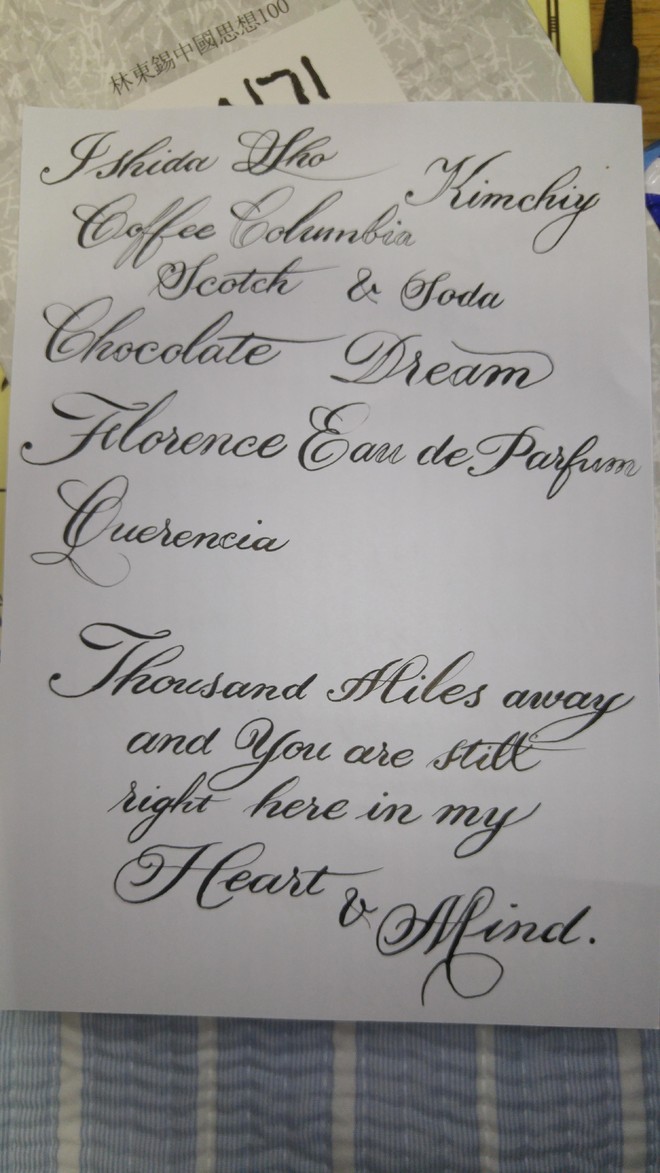 林東錫中國思想100
Ishida Sho Kimchiy
Coffee Columbia
Scotch & Soda
Chocolate Dream
Florence Eau de Parfum
Querencia
Thousand Miles away
and You are still
right here in my
Heart & Mind.